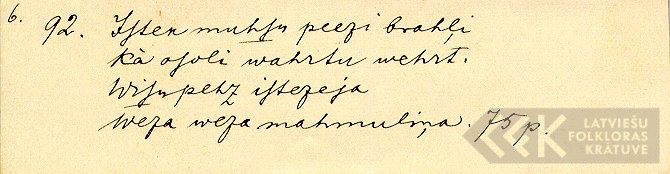 6. 92. Isten muhsu peezi brahļi
kà osoli wahrtu wehrt.
Wisupehz istezeja
weza weza mahmuliņa. 75 p.
LATVIEŠU
FOLKLORAS
KRĀTUVE